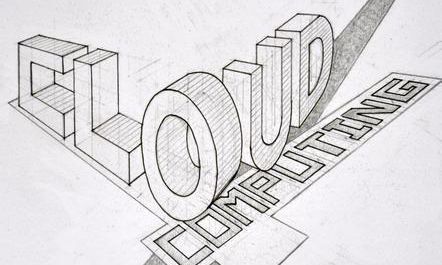 CLOUD
COMPUTING